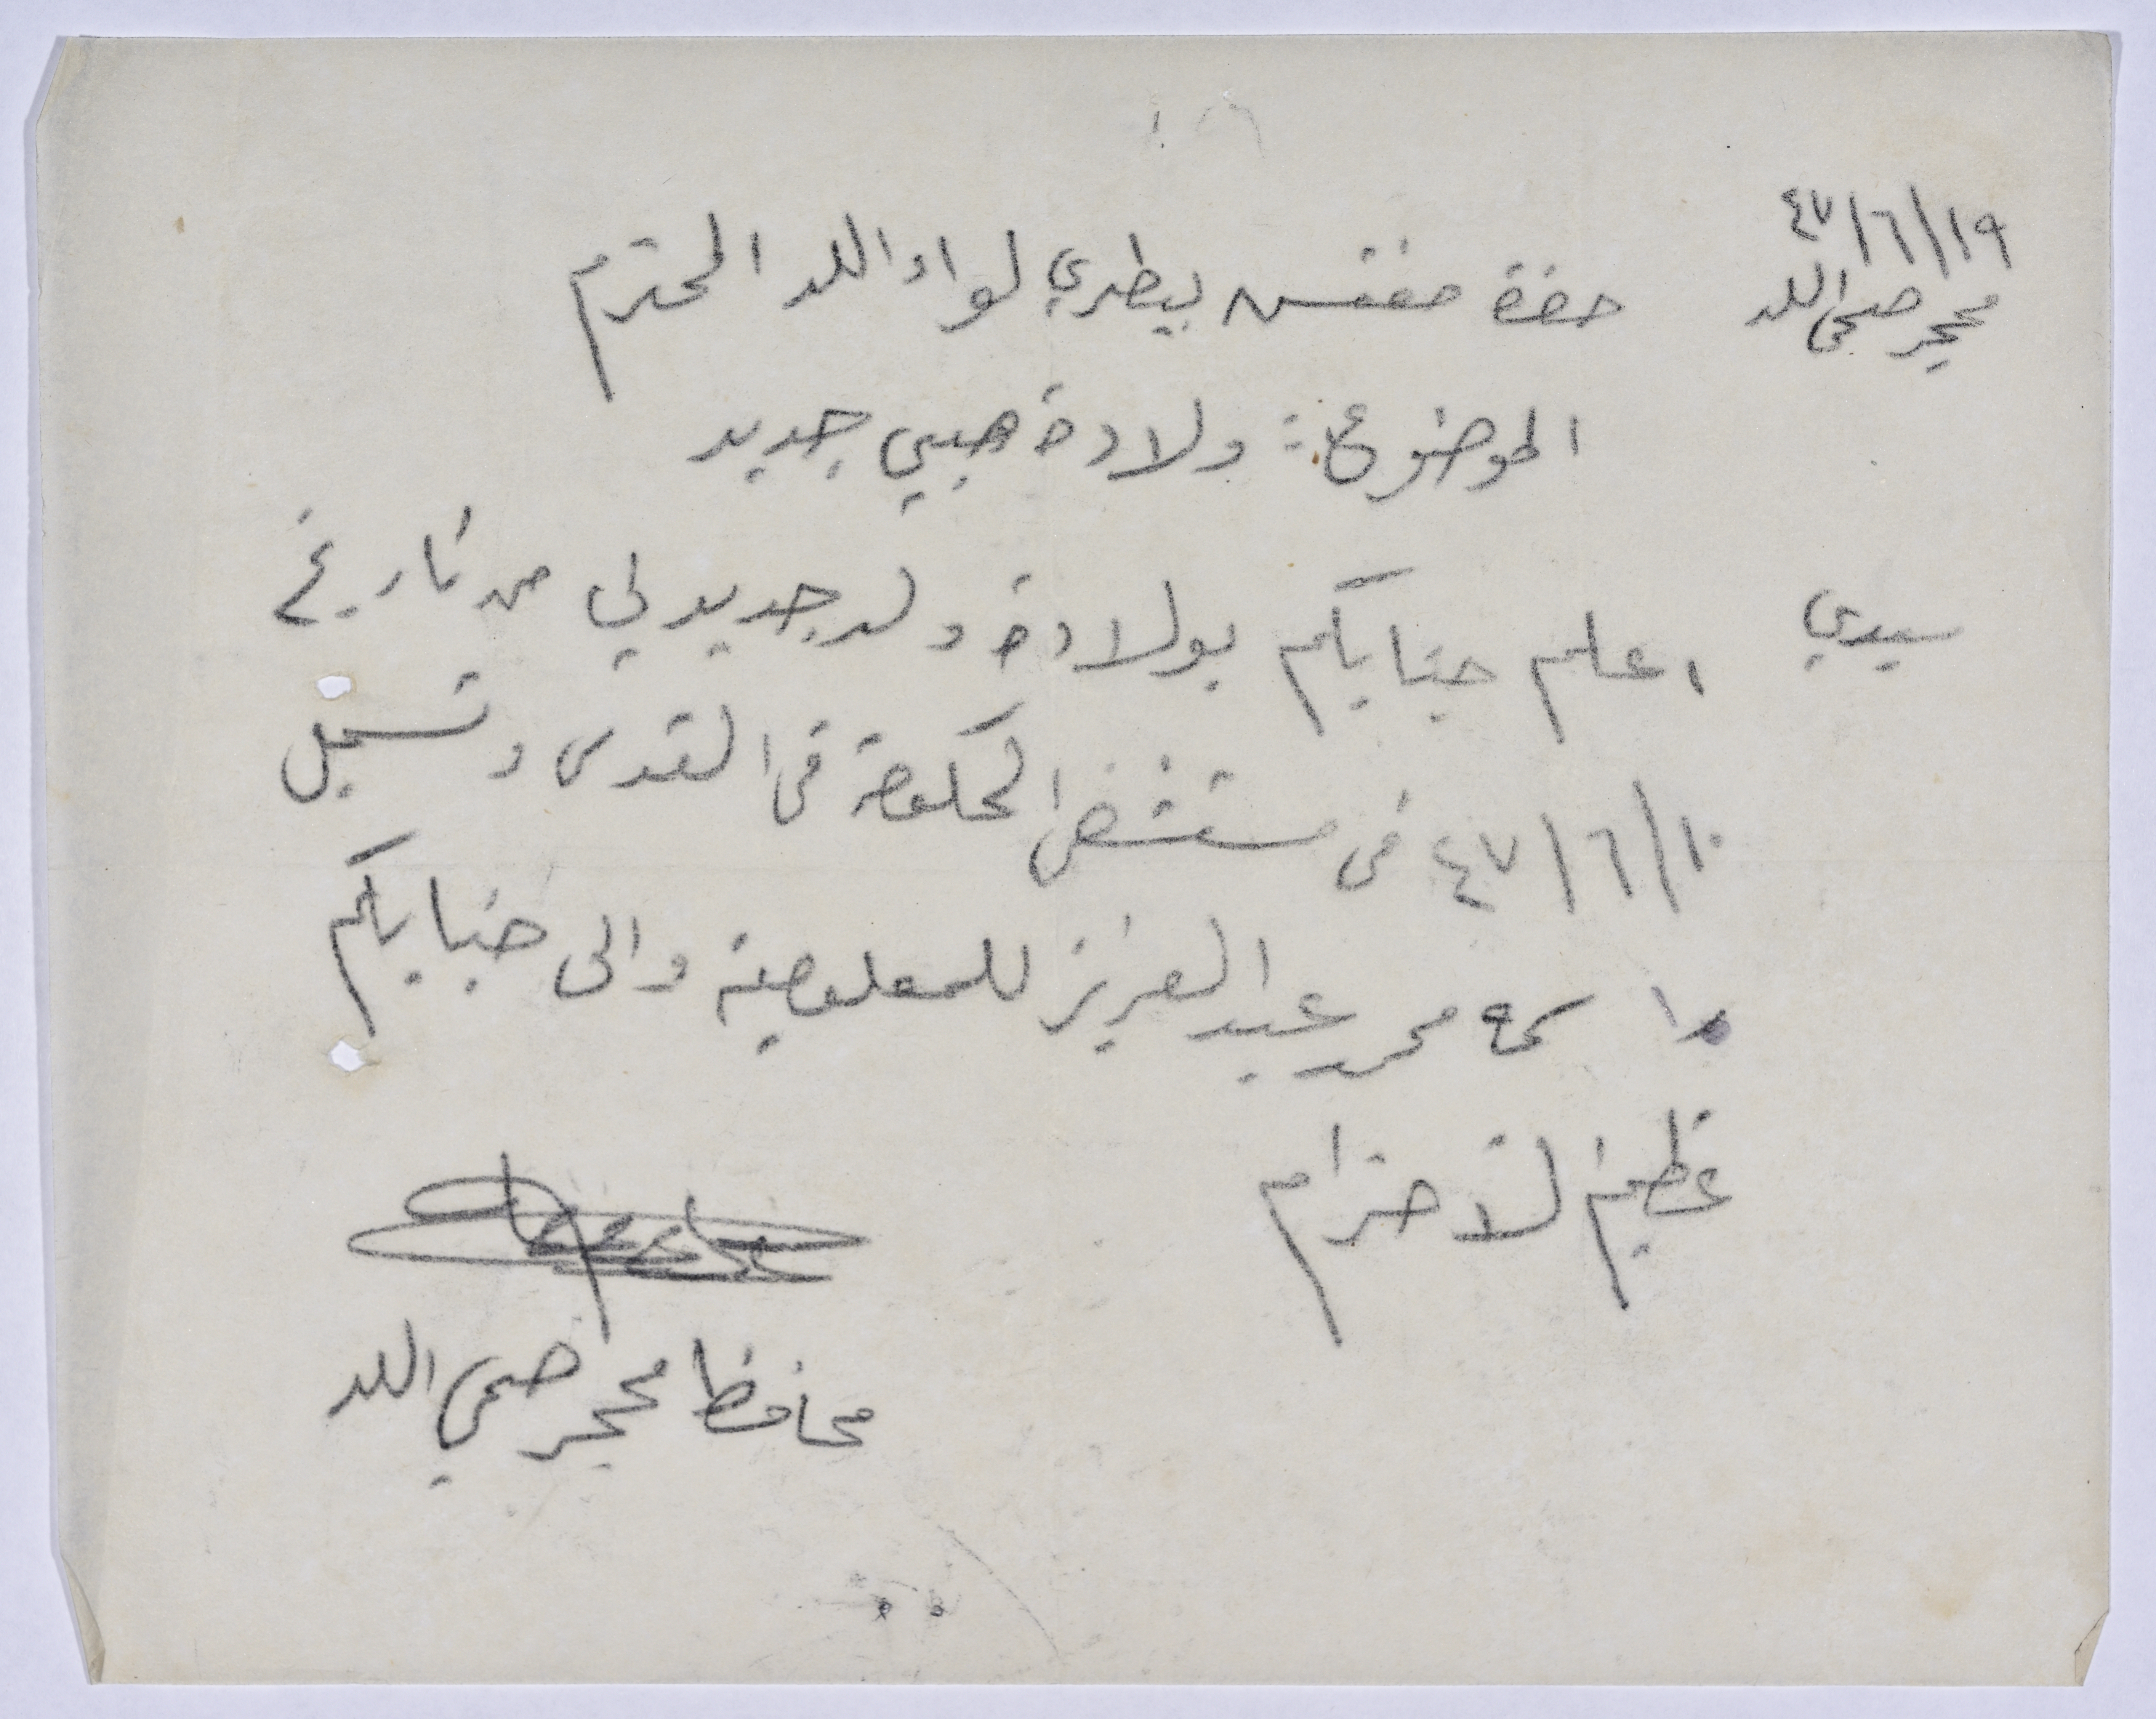 ٤٧/٦/١٩
محجر صحي اللد
حضرة مفتش بيطري لواء اللد المحترم
الموضوع: ولادة صبي جديد
سيدي
اعلم جنابكم بولادة ولد جديد لي من تاريخ
٤٧/٦/١٠ في مستشفى الحكومة في القدس وتسجل
اسمه محمد عبد العزيز للمعلومية والى جنابكم
عظيم الاحترام
محافظ محجر صحي اللد